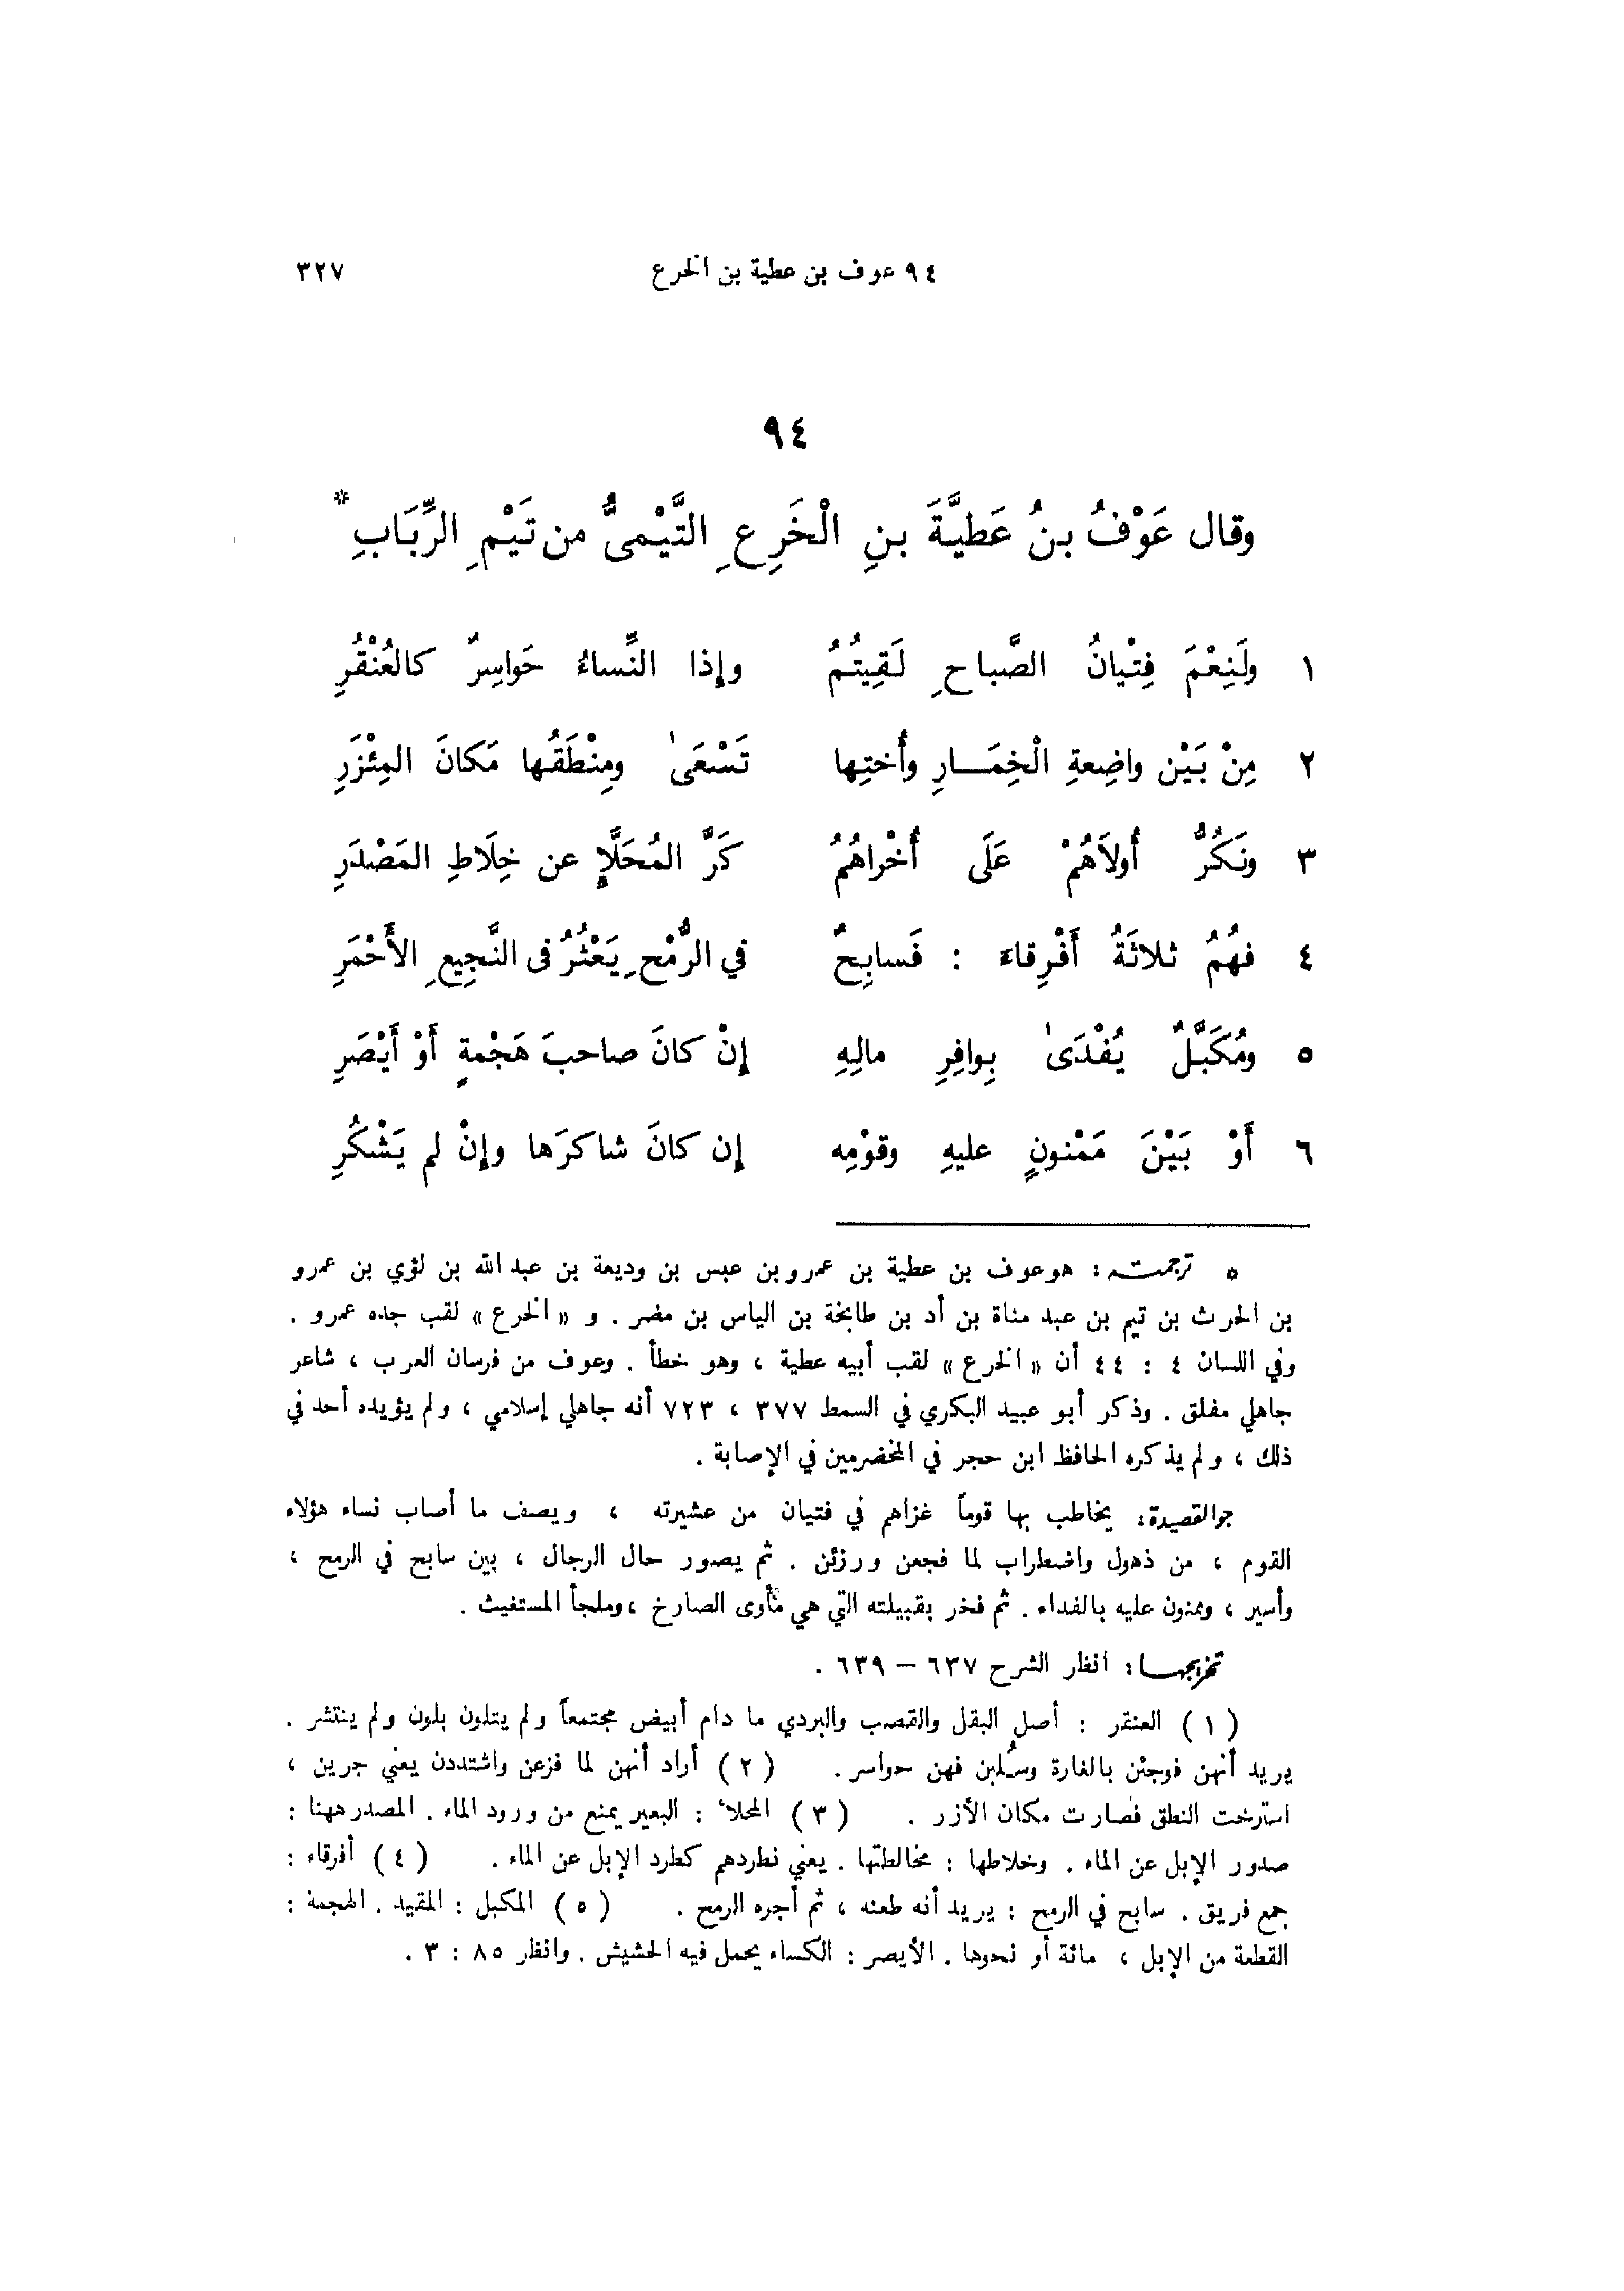 ٩٤ عوف بن عطية بن الخرع ٣٢٧
٩٤
وقال عَوْفُ بنُ عَطيَّةَ بنِ الْخَرِعِ التَّيْمىُّ من تَيْمِ الرِّبَابِ*
١ ولَنِعْمَ فِتْيانُ الصَّباحِ لَقِيتُمُ وإذا النِّساءُ حَواسِرٌ كالعُنْقُرِ
٢ مِنْ بَيْن واضِعةِ الْخِمَــارِ وأُختِها تَسْعَىٰ ومِنْطَقُها مَكانَ المِئْزَرِ
٣ ونَكُرُّ أُولاَهُمْ عَلَى أُخْراهُمُ كَرَّ المُحَلَّإِ عن خِلَاطِ المَصْدَرِ
٤ فهُمُ ثلاثَةُ أَفْرِقاءَ : فَسابِحٌ في الرُّمْحِ يَعْثُرُ فى النَّجِيعِ الأَحْمَرِ
٥ ومُكَبَّلٌ يُفْدَىٰ بِوافِرِ مالِهِ إنْ كانَ صاحبَ هَجْمةٍ أَوْ أَيْصَرِ
٦ أَوْ بَيْنَ مَمْنونٍ عليهِ وقوْمِه إن كانَ شاكرَها وإنْ لم يَشْكُرِ
* ترجمتــه : هو عوف بن عطية بن عمرو بن عبس بن وديعة بن عبد الله بن لؤي بن عمرو
بن الحرث بن تيم بن عبد مناة بن أد بن طابخة بن الياس بن مضر . و « الخرع » لقب جده عمرو .
وفي اللسان ٤ : ٤٤ أن « الخرع » لقب أبيه عطية ، وهو خطأ . وعوف من فرسان العرب ، شاعر
جاهلي مفلق . وذكر أبو عبيد البكري في السمط ٣٧٧ ، ٧٢٣ أنه جاهلي إسلامي ، ولم يؤيده أحد في
ذلك ، ولم يذكره الحافظ ابن حجر في المخضرمين في الإصابة .
جو القصيدة : يخاطب بها قوماً غزاهم في فتيان من عشيرته ، ويصف ما أصاب نساء هؤلاء
القوم ، من ذهول واضطراب لما فجعن ورزئن . ثم يصور حال الرجال ، بين سابح في الرمح ،
وأسير ، وممنون عليه بالفداء . ثم فخر بقبيلته التي هي مأوى الصارخ ، وملجأ المستغيث .
تخريجهــا : انظر الشرح ٦٣٧ – ٦٣٩ .
( ١ ) العنقر : أصل البقل والقصب والبردي ما دام أبيض مجتمعاً ولم يتلون بلون ولم ينتشر .
يريد أنهن فوجئن بالغارة وسُلبن فهن حواسر . ( ٢ ) أراد أنهن لما فزعن واشتددن يعني جرين ،
استرخت النطق فصارت مكان الأزر . ( ٣ ) المحلأ : البعير يمنع من ورود الماء . المصدر ههنا :
صدور الإبل عن الماء . وخلاطها : مخالطتها . يعني نطردهم كطرد الإبل عن الماء . ( ٤ ) أفرقاء :
جمع فريق . سابح في الرمح : يريد أنه طعنه ، ثم أجره الرمح . ( ٥ ) المكبل : المقيد . الهجمة :
القطعة من الإبل ، مائة أو نحوها . الأيصر : الكساء يحمل فيه الحشيش . وانظر ٨٥ : ٣ .